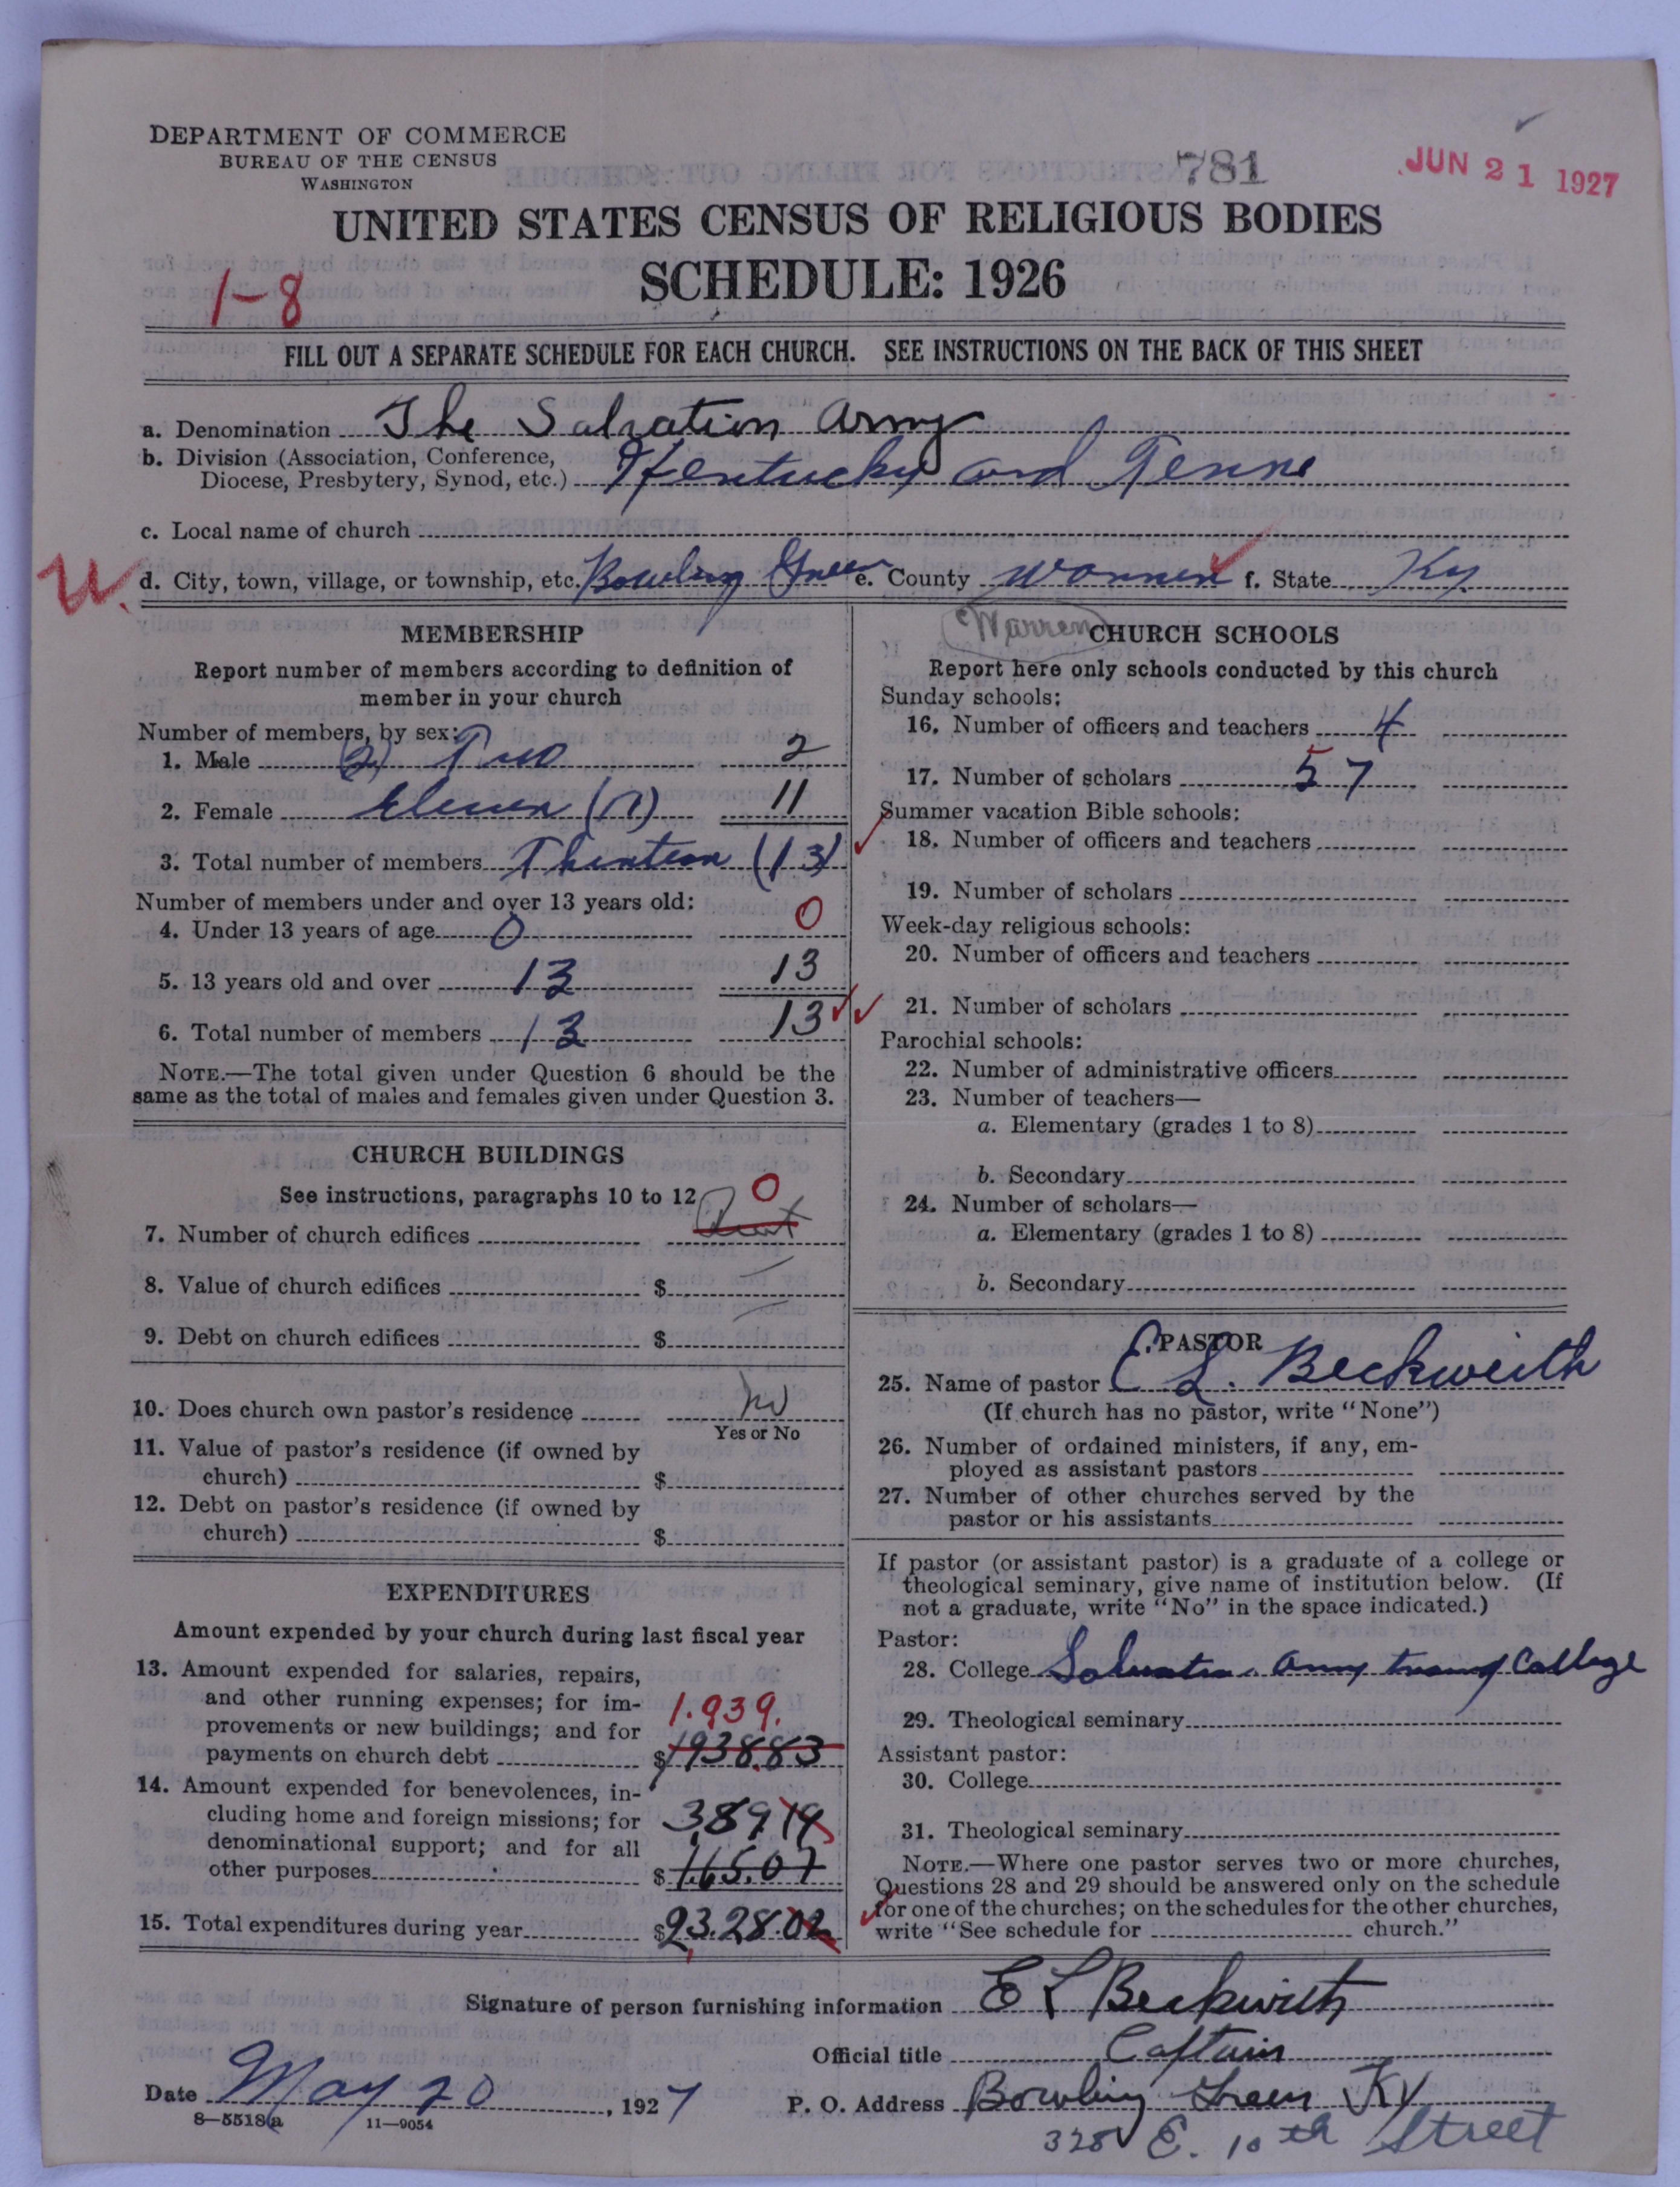 DEPARTMENT OF COMMERCE
BUREAU OF THE CENSUS
WASHINGTON
781
JUN 21 1927
UNITED STATES CENSUS OF RELIGIOUS BODIES
SCHEDULE: 1926
1-8
FILL OUT A SEPARATE SCHEDULE FOR EACH CHURCH. SEE INSTRUCTIONS ON THE BACK OF THIS SHEET
a. Denomination The Salvation Army
b. Division (Association, Conference,
Diocese, Presbytery, Synod, etc.) Kentucky and Tenne
c. Local name of church
U. d. City, town, village, or township, etc. Bowling Green e. County Warren f. State Ky.
Warren
MEMBERSHIP
Report number of members according to definition of
member in your church
Number of members, by sex:
1. Male (2) Two 2
2. Female Eleven (11) 11
3. Total number of members Thirteen (13)
Number of members under and over 13 years old:
4. Under 13 years of age 0 0
5. 13 years old and over 13 13
6. Total number of members 13 13
NOTE.—The total given under Question 6 should be the
same as the total of males and females given under Question 3.
CHURCH BUILDINGS
See instructions, paragraphs 10 to 12
7. Number of church edifices Rent 0
8. Value of church edifices $
9. Debt on church edifices $
10. Does church own pastor's residence No
Yes or No
11. Value of pastor's residence (if owned by
church) $
12. Debt on pastor's residence (if owned by
church) $
EXPENDITURES
Amount expended by your church during last fiscal year
13. Amount expended for salaries, repairs,
and other running expenses; for im-
provements or new buildings; and for 1.939.
payments on church debt $1938.83
14. Amount expended for benevolences, in-
cluding home and foreign missions; for 389.19
denominational support; and for all
other purposes $1165.07
15. Total expenditures during year $2328.02
CHURCH SCHOOLS
Report here only schools conducted by this church
Sunday schools:
16. Number of officers and teachers 4
17. Number of scholars 57
Summer vacation Bible schools:
18. Number of officers and teachers
19. Number of scholars
Week-day religious schools:
20. Number of officers and teachers
21. Number of scholars
Parochial schools:
22. Number of administrative officers
23. Number of teachers—
a. Elementary (grades 1 to 8)
b. Secondary
24. Number of scholars—
a. Elementary (grades 1 to 8)
b. Secondary
PASTOR
25. Name of pastor E. L. Beckwith
(If church has no pastor, write "None")
26. Number of ordained ministers, if any, em-
ployed as assistant pastors
27. Number of other churches served by the
pastor or his assistants
If pastor (or assistant pastor) is a graduate of a college or
theological seminary, give name of institution below. (If
not a graduate, write "No" in the space indicated.)
Pastor:
28. College Salvation Army Traing College
29. Theological seminary
Assistant pastor:
30. College
31. Theological seminary
NOTE.—Where one pastor serves two or more churches,
Questions 28 and 29 should be answered only on the schedule
for one of the churches; on the schedules for the other churches,
write "See schedule for church."
Signature of person furnishing information E L Beckwith
Official title Captain
Date May 20, 1927 P. O. Address Bowling Green Ky
8—5518a 11—9054
328 E. 10th Street